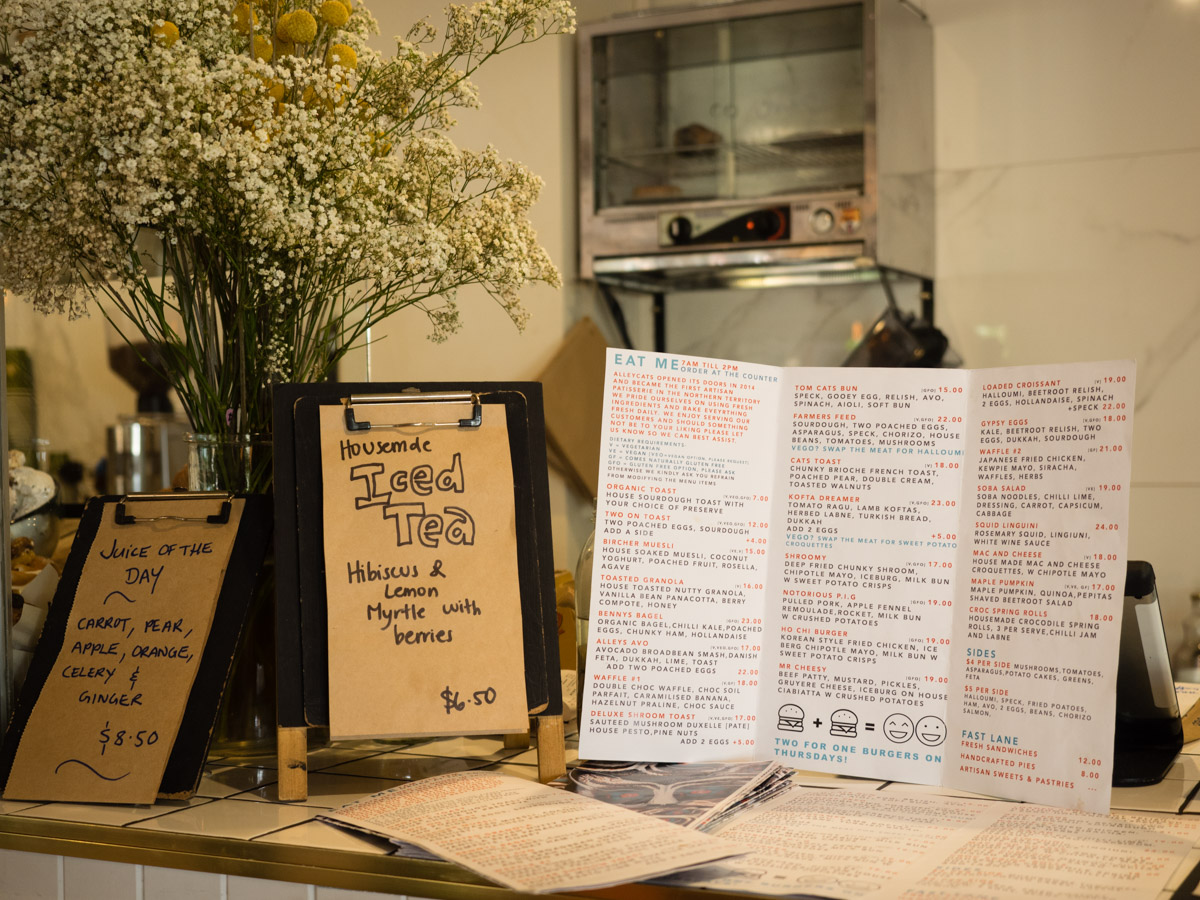 JUICE OF THE
DAY
CARROT, PEAR,
APPLE, ORANGE,
CELERY &
GINGER
$8.50
Housemde
Iced
Tea
Hibiscus &
Lemon
Myrtle with
berries
$6.50
EAT ME 7AM TILL 2PM
ORDER AT THE COUNTER
ALLEYCATS OPENED ITS DOORS IN 2014
AND BECAME THE FIRST ARTISAN
PATISSERIE IN THE NORTHERN TERRITORY
WE PRIDE OURSELVES ON USING FRESH
INGREDIENTS AND BAKE EVERYTHING
FRESH DAILY. WE ENJOY SERVING OUR
CUSTOMERS AND SHOULD SOMETHING
NOT BE TO YOUR LIKING PLEASE LET
US KNOW SO WE CAN BEST ASSIST.
DIETARY REQUIREMENTS.
V = VEGETARIAN
VE = VEGAN (VEO=VEGAN OPTION, PLEASE REQUEST)
GF = COMES NATURALLY GLUTEN FREE
GFO = GLUTEN FREE OPTION, PLEASE ASK
OTHERWISE WE KINDLY ASK YOU REFRAIN
FROM MODIFYING THE MENU ITEMS
ORGANIC TOAST (V,VEO,GFO) 7.00
HOUSE SOURDOUGH TOAST WITH
YOUR CHOICE OF PRESERVE
TWO ON TOAST (V,GFO) 12.00
TWO POACHED EGGS, SOURDOUGH
ADD A SIDE +4.00
BIRCHER MUESLI 15.00
HOUSE SOAKED MUESLI, COCONUT
YOGHURT, POACHED FRUIT, ROSELLA,
AGAVE
TOASTED GRANOLA (V) 16.00
HOUSE TOASTED NUTTY GRANOLA,
VANILLA BEAN PANACOTTA, BERRY
COMPOTE, HONEY
BENNYS BAGEL (GFO) 23.00
ORGANIC BAGEL, CHILLI KALE, POACHED
EGGS, CHUNKY HAM, HOLLANDAISE
ALLEYS AVO (V,VEO,GFO) 17.00
AVOCADO BROADBEAN SMASH, DANISH
FETA, DUKKAH, LIME, TOAST
ADD TWO POACHED EGGS 22.00
WAFFLE #1 (V,GF) 18.00
DOUBLE CHOC WAFFLE, CHOC SOIL
PARFAIT, CARAMILISED BANANA,
HAZELNUT PRALINE, CHOC SAUCE
DELUXE SHROOM TOAST (V,VEO,GFO) 17.00
SAUTEED MUSHROOM DUXELLE [PATE]
HOUSE PESTO, PINE NUTS
ADD 2 EGGS +5.00
TOM CATS BUN (GFO) 15.00
SPECK, GOOEY EGG, RELISH, AVO,
SPINACH, AIOLI, SOFT BUN
FARMERS FEED (V,GFO) 22.00
SOURDOUGH, TWO POACHED EGGS,
ASPARAGUS, SPECK, CHORIZO, HOUSE
BEANS, TOMATOES, MUSHROOMS
VEGO? SWAP THE MEAT FOR HALLOUMI
CATS TOAST (V) 18.00
CHUNKY BRIOCHE FRENCH TOAST,
POACHED PEAR, DOUBLE CREAM,
TOASTED WALNUTS
KOFTA DREAMER (V,GFO) 23.00
TOMATO RAGU, LAMB KOFTAS,
HERBED LABNE, TURKISH BREAD,
DUKKAH
ADD 2 EGGS +5.00
VEGO? SWAP THE MEAT FOR SWEET POTATO
CROQUETTES
SHROOMY (V,GFO) 17.00
DEEP FRIED CHUNKY SHROOM,
CHIPOTLE MAYO, ICEBURG, MILK BUN
W SWEET POTATO CRISPS
NOTORIOUS P.I.G (GFO) 19.00
PULLED PORK, APPLE FENNEL
REMOULADE, ROCKET, MILK BUN
W CRUSHED POTATOES
HO CHI BURGER (GFO) 19.00
KOREAN STYLE FRIED CHICKEN, ICE
BERG CHIPOTLE MAYO, MILK BUN W
SWEET POTATO CRISPS
MR CHEESY (GFO) 19.00
BEEF PATTY, MUSTARD, PICKLES,
GRUYERE CHEESE, ICEBURG ON HOUSE
CIABIATTA W CRUSHED POTATOES
+ =
TWO FOR ONE BURGERS ON
THURSDAYS!
LOADED CROISSANT (V) 19.00
HALLOUMI, BEETROOT RELISH,
2 EGGS, HOLLANDAISE, SPINACH
+SPECK 22.00
GYPSY EGGS (V,GFO) 18.00
KALE, BEETROOT RELISH, TWO
EGGS, DUKKAH, SOURDOUGH
WAFFLE #2 21.00
JAPANESE FRIED CHICKEN,
KEWPIE MAYO, SIRACHA,
WAFFLES, HERBS
SOBA SALAD (VE) 19.00
SOBA NOODLES, CHILLI LIME,
DRESSING, CARROT, CAPSICUM,
CABBAGE
SQUID LINGUINI 24.00
ROSEMARY SQUID, LINGIUNI,
WHITE WINE SAUCE
MAC AND CHEESE (V) 18.00
HOUSE MADE MAC AND CHEESE
CROQUETTES, W CHIPOTLE MAYO
MAPLE PUMPKIN (V,VE,GF) 17.00
MAPLE PUMPKIN, QUINOA, PEPITAS
SHAVED BEETROOT SALAD
CROC SPRING ROLLS 18.00
HOUSEMADE CROCODILE SPRING
ROLLS, 3 PER SERVE, CHILLI JAM
AND LABNE
SIDES
$4 PER SIDE MUSHROOMS, TOMATOES,
ASPARAGUS, POTATO CAKES, GREENS,
FETA
$5 PER SIDE
HALLOUMI, SPECK, FRIED POATOES,
HAM, AVO, 2 EGGS, BEANS, CHORIZO
SALMON,
FAST LANE
FRESH SANDWICHES 12.00
HANDCRAFTED PIES 8.00
ARTISAN SWEETS & PASTRIES ...